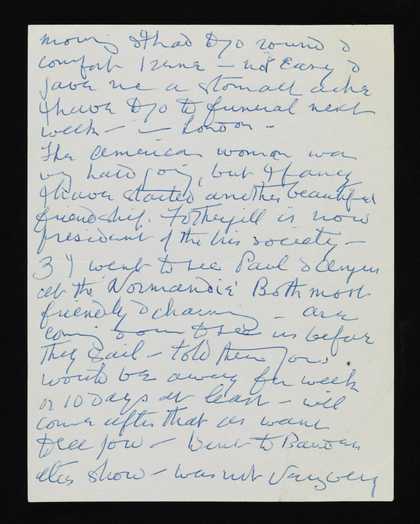 moving & I had to go round &
comfort Irene – not easy &
gave me a stomach ache
I have to go to funeral next
week – – London –
The American woman was
v hard going, but I fancy
I have started another beautiful
friendship. Fothergill is now
president of the Iris Society –
3") went to see Paul &
at the 'Normandie' Both most
friendly & charming – are
coming to see us before
they sail – told them you
would be away for week
or 10 days at least – will
come after that as want
see you – went to
show – was not very